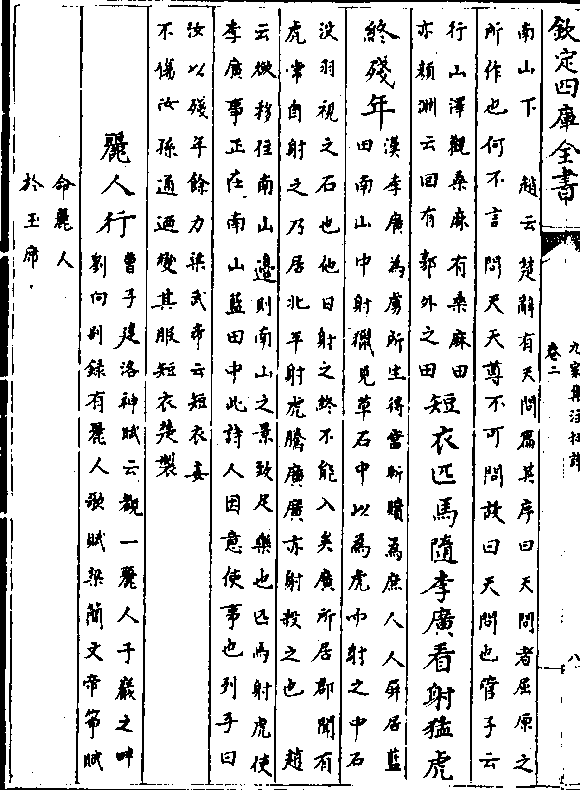 欽定四庫全書
九家集注杜詩
卷二
八
南山下　趙云楚辭有天問篇其序曰天問者屈原之
所作也何不言問天天尊不可問故曰天問也管子云
行山澤觀桑麻有桑麻田
亦顏淵云回有郭外之田
短衣匹馬隨李廣看射猛虎
終殘年
漢李廣為虜所生得當斬贖為庶人人屏居藍
田南山中射獵見草石中以為虎而射之中石
沒羽視之石也他日射之終不能入矣廣所居郡聞有
虎常自射之乃居北平射虎騰廣廣亦射殺之也　趙
云欲移住南山邊則南山之景致足樂也匹馬射虎使
李廣事正在南山藍田中此詩人因意使事也列子曰
汝以殘年餘力梁武帝云短衣妾
不傷汝孫通通變其服短衣楚製
麗人行
曹子建洛神賦云覩一麗人于巖之畔
劉向别録有麗人歌賦梁簡文帝箏賦
命麗人
於玉席